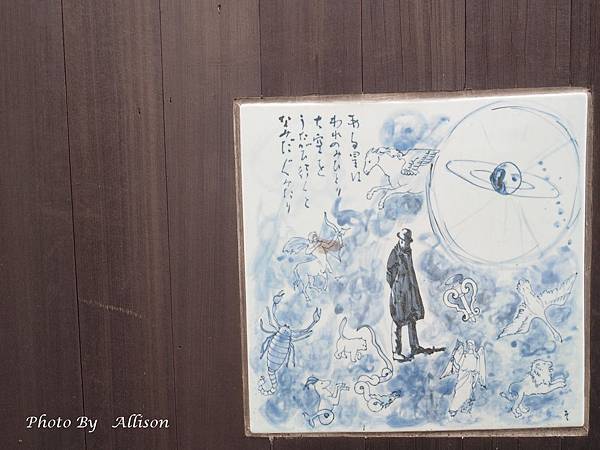 ある星は
われのみひとり
大空を
うたがひ行くと
なみだぐみたり
Photo By Allison